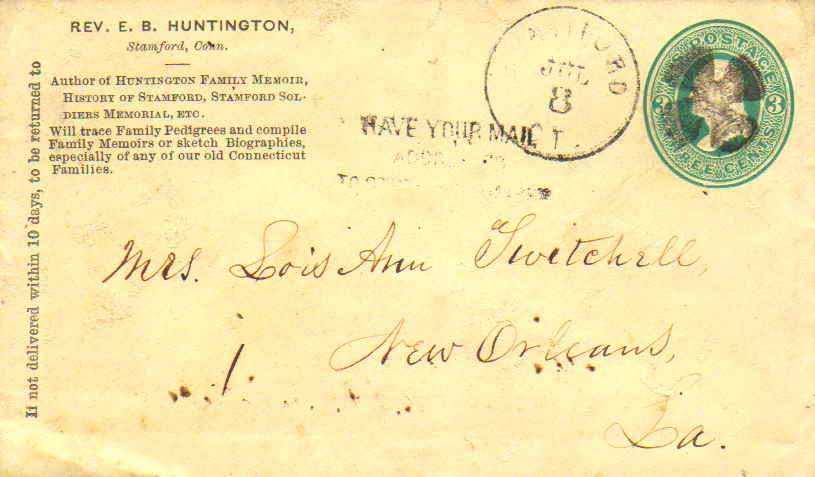 REV. E. B. HUNTINGTON,
Stamford, Conn.
Author of HUNTINGTON FAMILY MEMOIR,
HISTORY OF STAMFORD, STAMFORD SOL-
DIERS MEMORIAL, ETC.
Will trace Family Pedigrees and compile
Family Memoirs or sketch Biographies,
especially of any of our old Connecticut
Families.
If not delivered within 10 days, to be returned to
JUL
8
HAVE YOUR MAIL
TO
U.S. POSTAGE
3 3
THREE CENTS
Mrs. Lois Ann Twitchell,
New Orleans,
La.